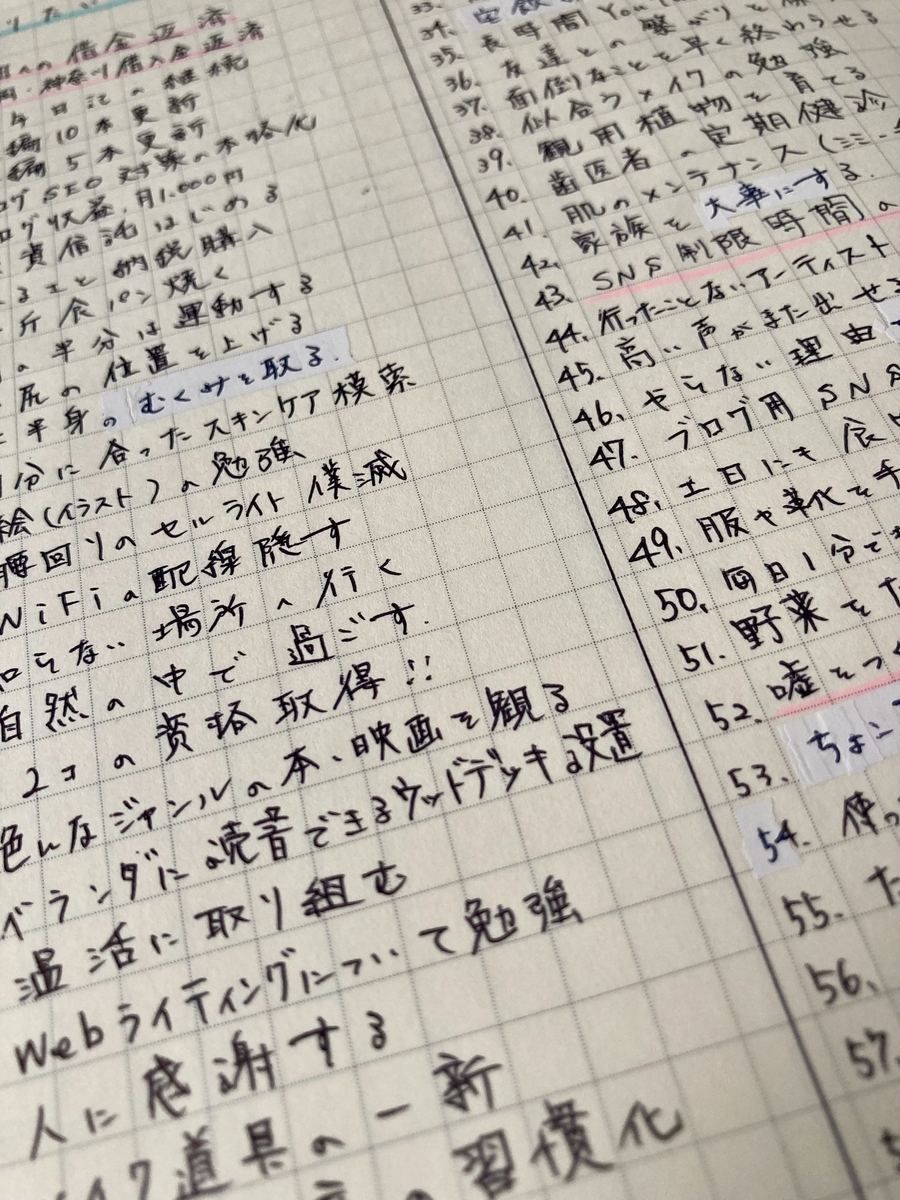 りたい
への借金返済
神奈川借入金返済
日記の継続
編10本更新
編5本更新
ログSEO対策の本格化
ログ収益、月1,000円
資信託はじめる
るさと納税購入
斤食パン焼く
の半分は運動する
尻の位置を上げる
半身のむくみを取る.
分に合ったスキンケア模索
絵(イラスト)の勉強
腰回りのセルライト僕滅
WiFiの配線隠す
知らない場所へ行く
自然の中で過ごす.
2コの資格取得!!
色んなジャンルの本、映画を観る
ベランダに読音できるウッドデッキ設置
温活に取り組む
Webライティングについて勉強
人に感謝する
イク道具の一新
の習慣化
33.
34.
35. 長時間YouT
36. 友達との繋がりを
37. 面倒なことを早く終わらせる
38. 似合うメイクの勉強
39. 観用植物を育てる
40. 歯医者の定期健診
41. 肌のメンテナンス(ミミ
42. 家族を大事にする.
43. SNS制限時間の
44. 行ったことないアーティスト
45. 高い声がまた出せる
46. やらない理由
47. ブログ用SNS
48. 土日にも
49. 服や美化を手
50. 毎日1分で
51. 野菜をた
52. 嘘をつく
53. ちょこ
54. 使っ
55. た
56.
57.